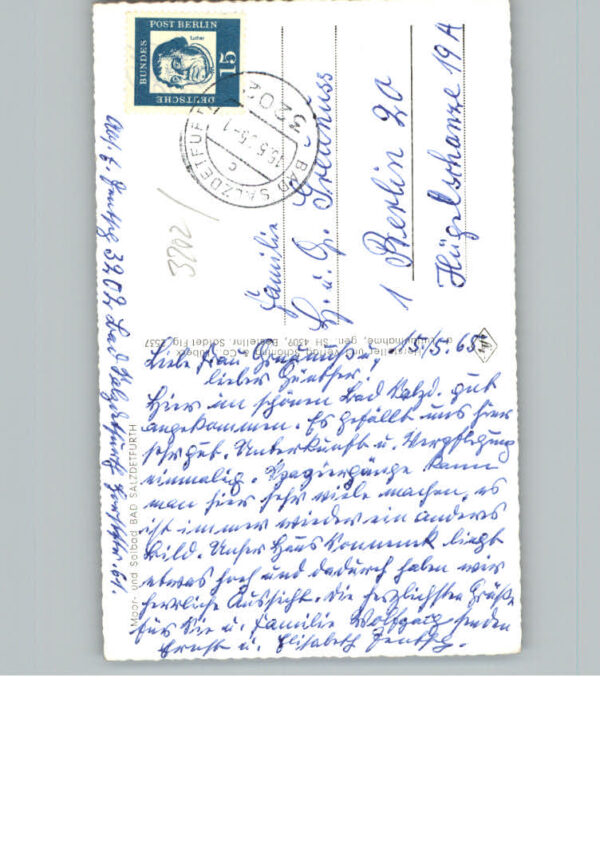 DEUTSCHE
BUNDES
POST BERLIN
Luther
15
3202
BAD SALZDETFURTH
c
3202
Familie
H. u. G.
1 Berlin 20
Hügelschanze 19A
Hersteller und Verlag Schöning & Co., Lübeck
gen. SH 4309, Bestellnr.
15/5. 65
Liebe Frau
lieber Günther!
Hier im schönen Bad Salzd. gut
angekommen. Es gefällt uns hier
sehr gut. Unterkunft u. Verpflegung
einmalig. Spaziergänge kann
man hier sehr viele machen, es
ist immer wieder ein anderes
Bild. Unser Haus Sonneneck liegt
etwas hoch und dadurch haben wir
herrliche Aussicht. Die herzlichsten Grüße
für Sie u. Familie Wolfgang senden
Ernst u. Elisabeth
Moor- und Solbad BAD SALZDETFURTH
Abs. E. 3202 Bad Salzdetfurth 61.